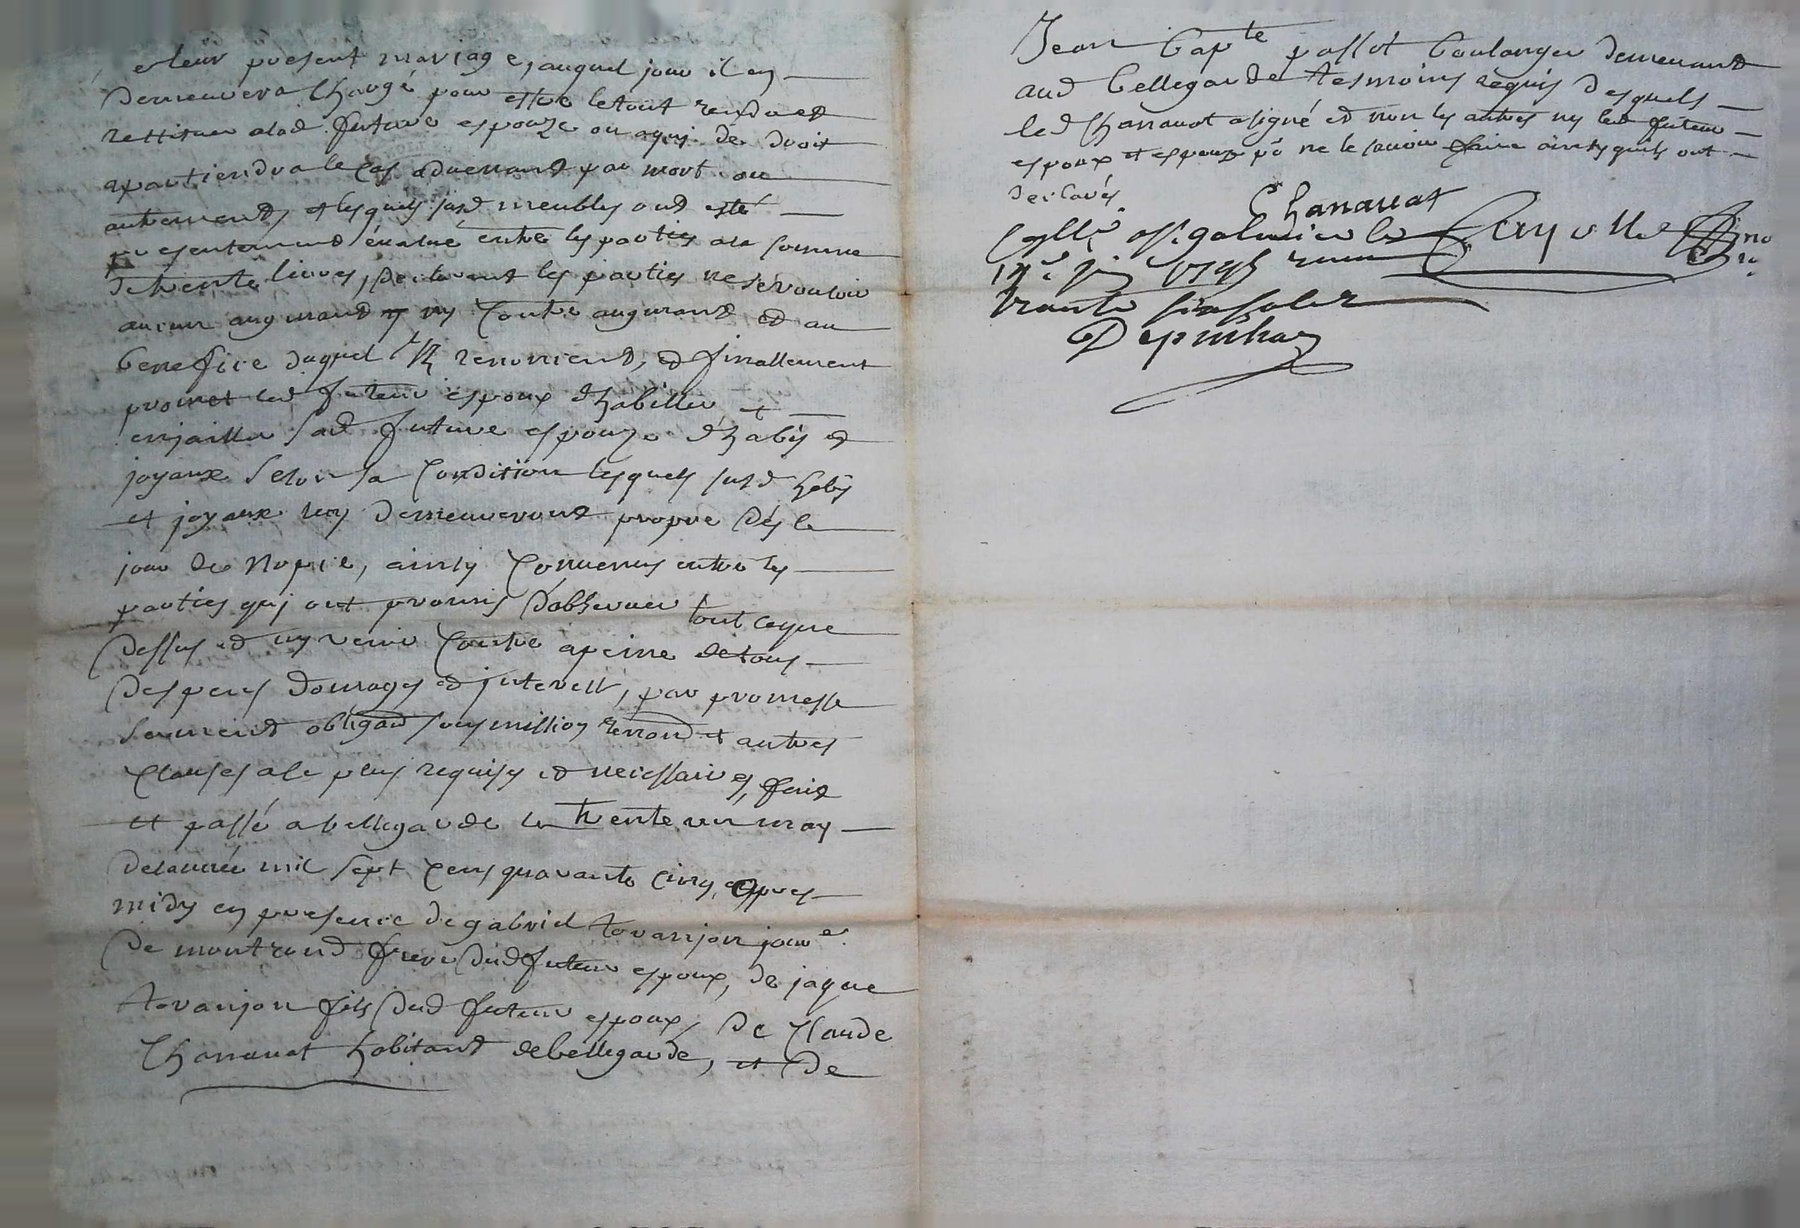 de leur present mariage, auquel jour il en
demeurera chargé pour estre le tout rendu et
restituer alad future espouze ou a qui de droit
apartiendra le cas advenant par mort ou
autrement, et lesquels susd meubles ont esté
presentement évalué entre les parties a la somme
de trente livres, declarant les parties ne se vouloir
aucun augmand ny contre augmand et au
benefice duquel ilz renoncent, et finallement
promet led futeur espoux d'habiller et
enjailler sad future espouze d'habis et
joyaux selon sa condition lesquels susd habis
et joyaux luy demeureront propre dés le
jour de nopce, ainsy convenus entre les
parties qui ont promis d'observer tout ce que
dessus et ny venir contre a peine de tous
despens domages et interest, par promesse
serment obligaon soumission renon et autres
clauses a le plus requises et necessaires, fait
et passé a bellegarde le trente un may
de l'année mil sept cens quarante cinq apres
midy en presence de gabriel tovanjon jour.
de montrond frere dud futeur espoux, de jaque
tovanjon fils dud futeur espoux, de Claude
Chanauat habitant de bellegarde, et de
Jean Bapte passot boulanger demeurant
aud bellegarde tesmoins requis desquels
led Chanauat a signé et non les autres ny led futeur
espoux et espouze pō ne le scavoir faire ainsy quils ont
declarés
Chanauat
Collé a St galmier le
trente six solz